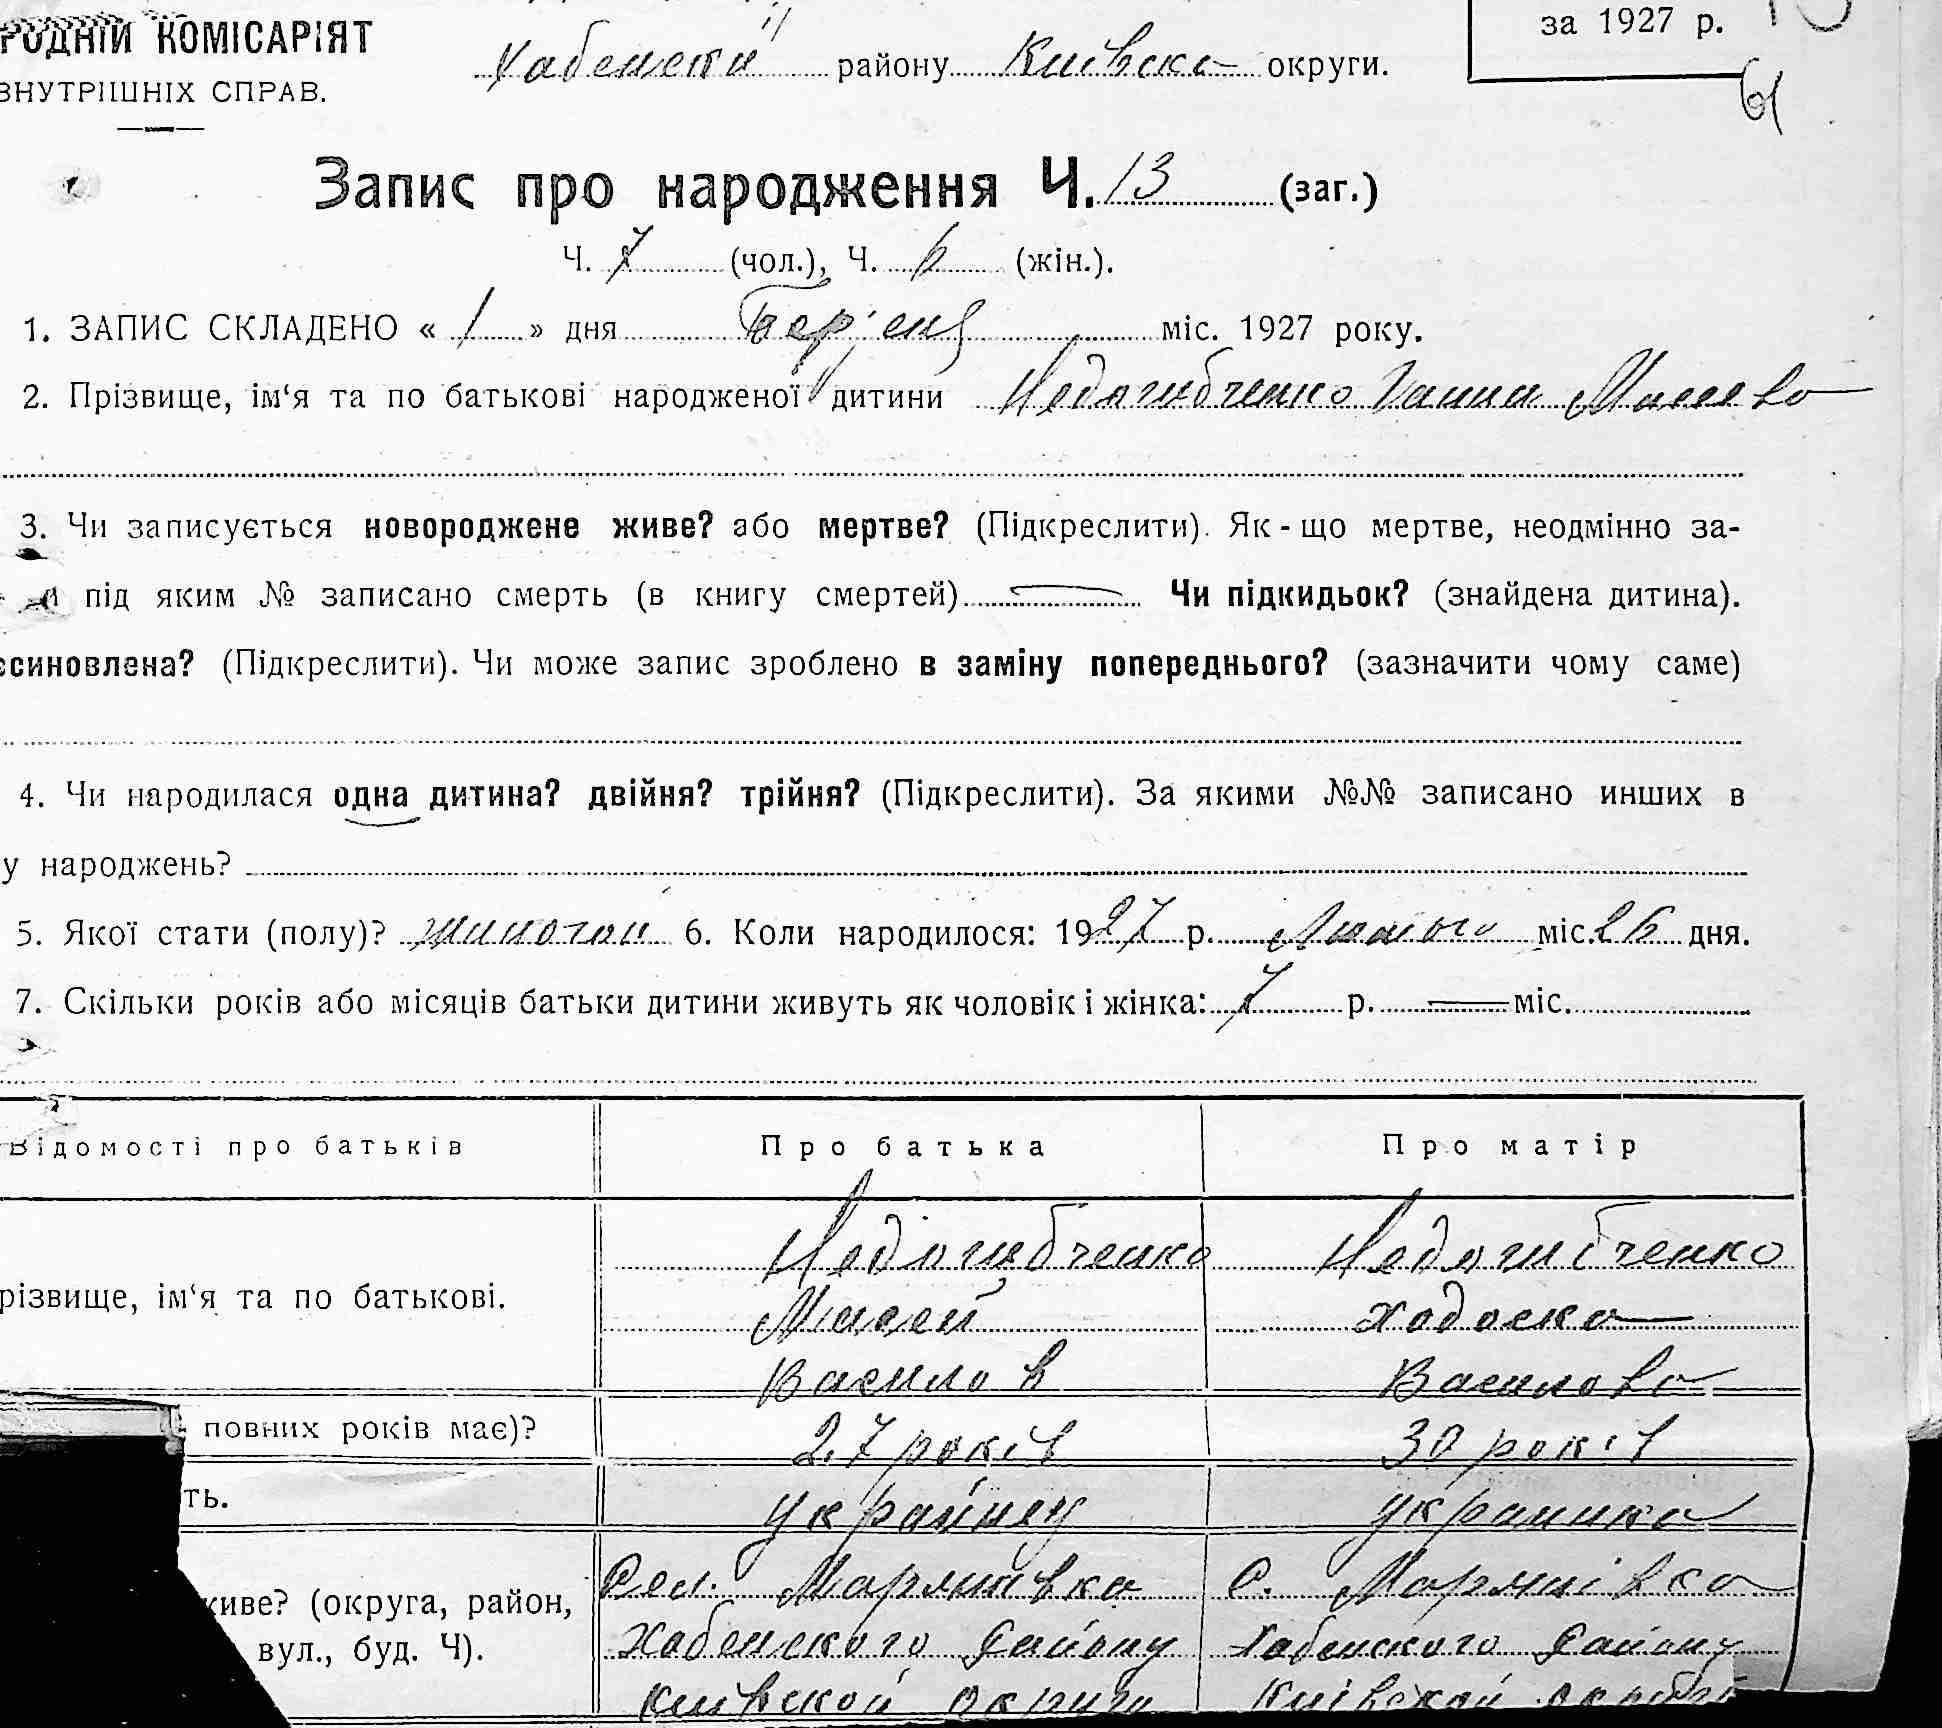 РОДНІЙ КОМІСАРІЯТ
ВНУТРІШНІХ СПРАВ.
Хабенский району Київска округи.
за 1927 р.
Запис про народження Ч. 13 (заг.)
Ч. 7 (чол.), Ч. 6 (жін.).
1. ЗАПИС СКЛАДЕНО « 1 » дня міс. 1927 року.
2. Прізвище, ім‘я та по батькові народженої дитини Недогибченко Ганна
3. Чи записується новороджене живе? або мертве? (Підкреслити). Як - що мертве, неодмінно за-
під яким № записано смерть (в книгу смертей) Чи підкидьок? (знайдена дитина).
синовлена? (Підкреслити). Чи може запис зроблено в заміну попереднього? (зазначити чому саме)
4. Чи народилася одна дитина? двійня? трійня? (Підкреслити). За якими №№ записано инших в
у народжень?
5. Якої стати (полу)? 6. Коли народилося: 1927 р. Лютого міс. 26 дня.
7. Скільки років або місяців батьки дитини живуть як чоловік і жінка: 7 р. — міс.
Відомості про батьків Про батька Про матір
Недогибченко Недогибченко
різвище, ім‘я та по батькові. Мисей Ходоска
Василов Василова
повних років має)? 27 років 30 років
ть. українец украинка
киве? (округа, район, Сел. Марянівка С. Марянівка
вул., буд. Ч). Хабенского району Хабенского району
Київской округи Київской